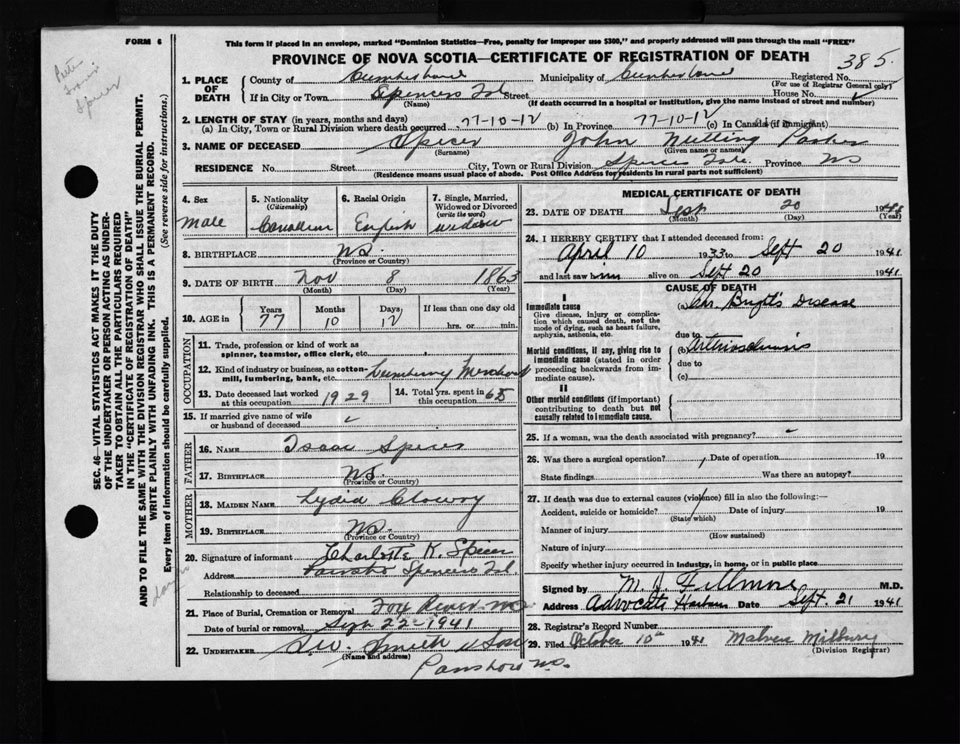 FORM 6
This form if placed in an envelope, marked "Dominion Statistics—Free, penalty for improper use $300," and properly addressed will pass through the mail "FREE"
PROVINCE OF NOVA SCOTIA—CERTIFICATE OF REGISTRATION OF DEATH
385
Spicer
1. PLACE OF DEATH County of Cumberland Municipality of Cumberland Registered No.
(For use of Registrar General only)
If in City or Town Spencers Isl Street House No.
(Name) (If death occurred in a hospital or institution, give the name instead of street and number)
2. LENGTH OF STAY (in years, months and days)
(a) In City, Town or Rural Division where death occurred 77-10-12 (b) In Province 77-10-12 (c) In Canada (if immigrant)
3. NAME OF DECEASED Spicer John Nutting
(Surname) (Given name or names)
RESIDENCE No. Street City, Town or Rural Division Province NS
(Residence means usual place of abode. Post Office Address for residents in rural parts not sufficient)
4. Sex Male
5. Nationality (Citizenship) Canadian
6. Racial Origin English
7. Single, Married, Widowed or Divorced (write the word) widow
8. BIRTHPLACE NS.
(Province or Country)
9. DATE OF BIRTH Nov 8 1863
(Month) (Day) (Year)
10. AGE in Years 77 Months 10 Days 12 If less than one day old hrs. or min.
OCCUPATION
11. Trade, profession or kind of work as spinner, teamster, office clerk, etc.
12. Kind of industry or business, as cotton-mill, lumbering, bank, etc. Merchant
13. Date deceased last worked at this occupation 1929
14. Total yrs. spent in this occupation
15. If married give name of wife or husband of deceased
FATHER
16. NAME Isaac Spicer
17. BIRTHPLACE NS.
(Province or Country)
MOTHER
18. MAIDEN NAME Lydia
19. BIRTHPLACE NS.
(Province or Country)
20. Signature of informant Charlotte K. Spicer
Address Spencers Isl.
Relationship to deceased
21. Place of Burial, Cremation or Removal Fox River NS
Date of burial or removal Sept 22 1941
22. UNDERTAKER Smith & Son
(Name and address)
Parrsboro NS.
MEDICAL CERTIFICATE OF DEATH
23. DATE OF DEATH Sept 20 19
(Month) (Day) (Year)
24. I HEREBY CERTIFY that I attended deceased from:
April 10 1933 to Sept 20 1941
and last saw him alive on Sept 20 1941
CAUSE OF DEATH
I
Immediate cause (a) Chr Bright's Disease
Give disease, injury or complication which caused death, not the mode of dying, such as heart failure, asphyxia, asthenia, etc.
due to
Morbid conditions, if any, giving rise to immediate cause (stated in order proceeding backwards from immediate cause)
(b)
due to
(c)
II
Other morbid conditions (if important) contributing to death but not causally related to immediate cause.
25. If a woman, was the death associated with pregnancy?
26. Was there a surgical operation? Date of operation 19
State findings Was there an autopsy?
27. If death was due to external causes (violence) fill in also the following:—
Accident, suicide or homicide? Date of injury 19
(State which)
Manner of injury
(How sustained)
Nature of injury
Specify whether injury occurred in industry, in home, or in public place
Signed by M. Fillmore M.D.
Address Advocate Harbour Date Sept. 21 1941
28. Registrar's Record Number
29. Filed October 10th 1941
(Division Registrar)
SEC. 46—VITAL STATISTICS ACT MAKES IT THE DUTY
OF THE UNDERTAKER OR PERSON ACTING AS UNDER-
TAKER TO OBTAIN ALL THE PARTICULARS REQUIRED
IN THE "CERTIFICATE OF REGISTRATION OF DEATH"
AND TO FILE THE SAME WITH THE DIVISION REGISTRAR WHO SHALL ISSUE THE BURIAL PERMIT.
WRITE PLAINLY WITH UNFADING INK. THIS IS A PERMANENT RECORD.
Every item of information should be carefully supplied. (See reverse side for instructions.)